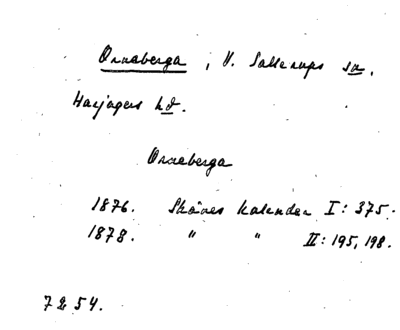 Ornaberga, V. Sallerups sn.
Harjagers hd.
Ornaberga
1876. Skånes kalender I: 375.
1878. " " II: 195, 198.
7254.